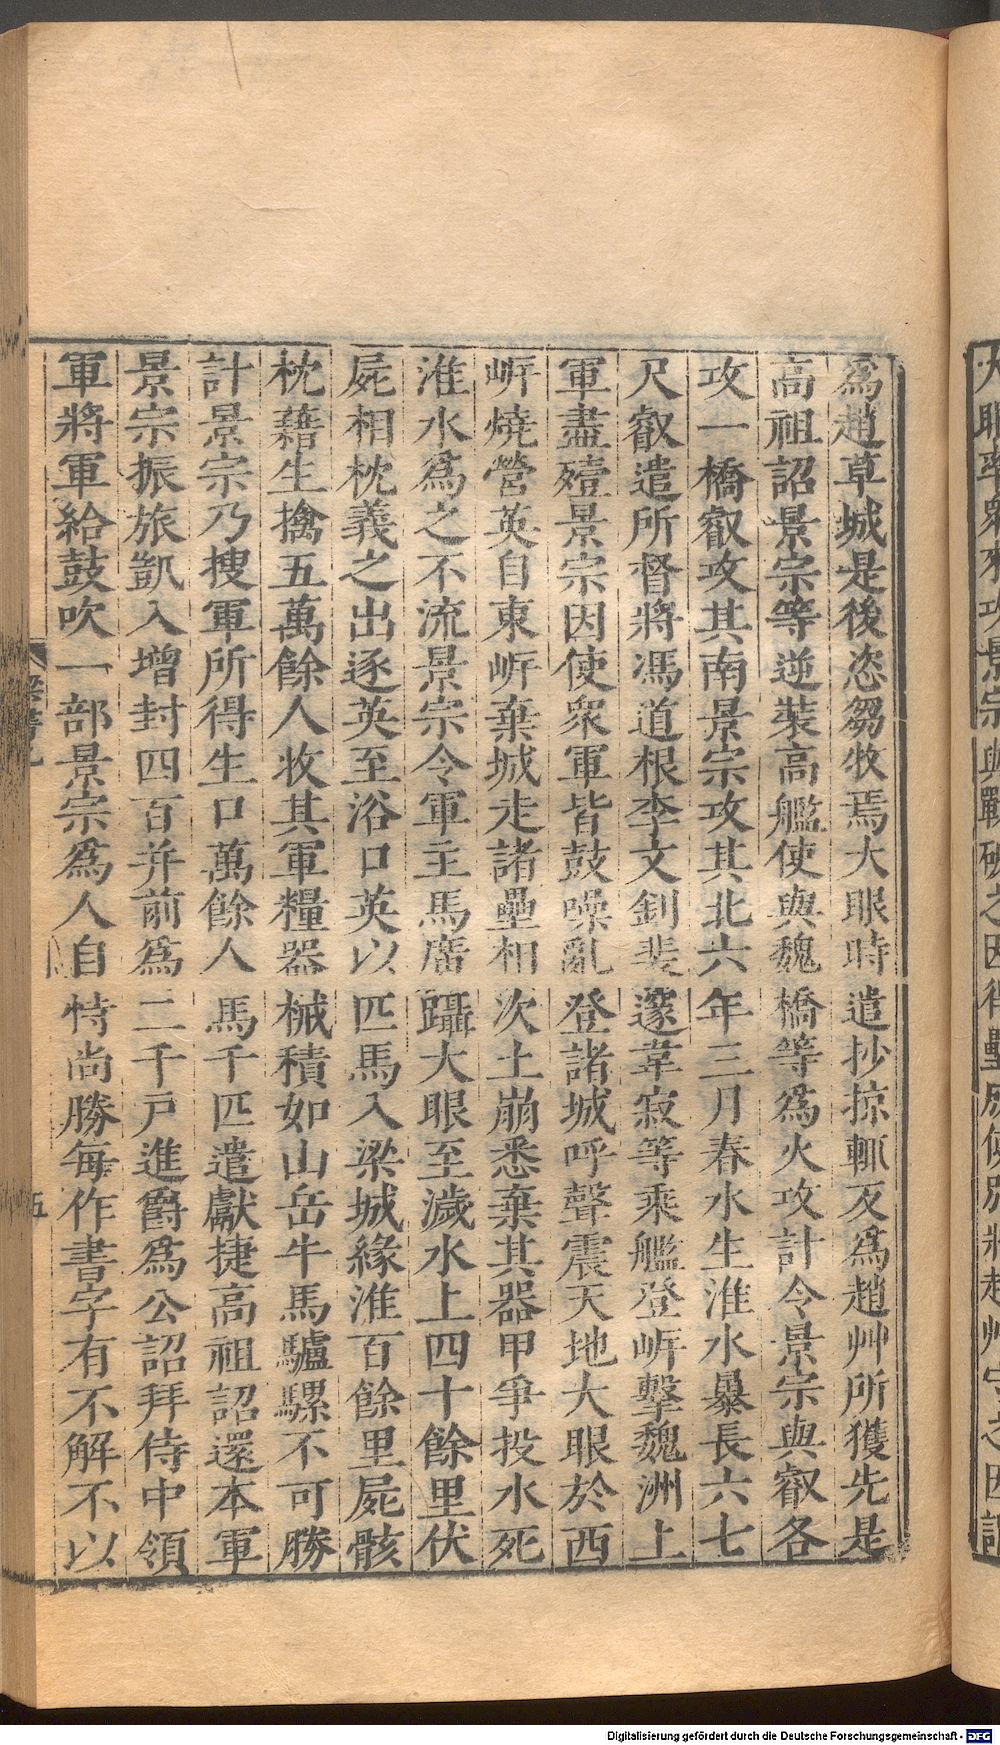 爲趙草城是後恣芻牧焉大眼時遣抄掠輒及爲趙艸所獲先是
高祖詔景宗等逆裝高艦使與魏橋等爲火攻計令景宗與叡各
攻一橋叡攻其南景宗攻其北六年三月春水生淮水暴長六七
尺叡遣所督將馮道根李文釗裴邃韋寂等乘艦登㟁擊魏洲上
軍盡殪景宗因使衆軍皆鼓噪亂登諸城呼聲震天地大眼於西
㟁燒營英自東㟁棄城走諸壘相次土崩悉棄其器甲爭投水死
淮水爲之不流景宗令軍主馬廣躡大眼至濊水上四十餘里伏
屍相枕義之出逐英至浴口英以匹馬入梁城緣淮百餘里屍骸
枕藉生擒五萬餘人收其軍糧器械積如山岳牛馬驢騾不可勝
計景宗乃搜軍所得生口萬餘人馬千匹遣獻捷高祖詔還本軍
景宗振旅凱入增封四百并前爲二千戸進爵爲公詔拜侍中領
軍將軍給鼓吹一部景宗爲人自恃尚勝每作書字有不解不以
五
Digitalisierung gefördert durch die Deutsche Forschungsgemeinschaft - DFG